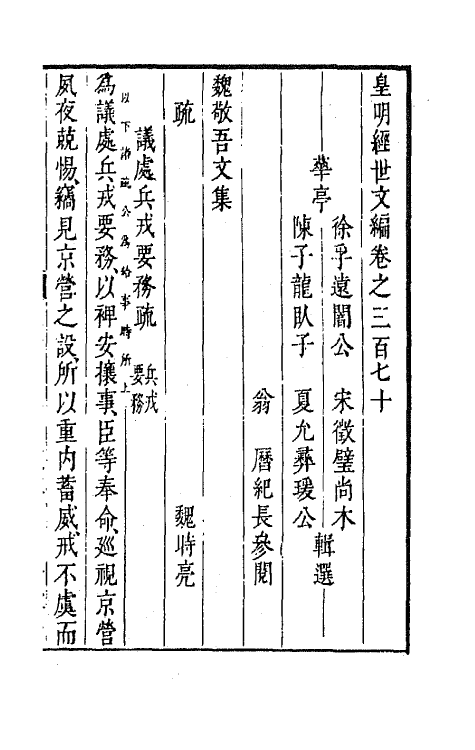 皇明經世文編卷之三百七十
華亭
徐孚遠闇公 宋徵璧尚木
陳子龍臥子 夏允彝瑗公
輯選
翁 曆紀長參閱
魏敬吾文集
疏 魏時亮
議處兵戎要務疏 兵戎要務
以下諸疏公爲給事時所上
為議處兵戎要務、以裨安攘事、臣等奉命、巡視京營
夙夜兢惕、竊見京營之設、所以重内蓄威、戒不虞而